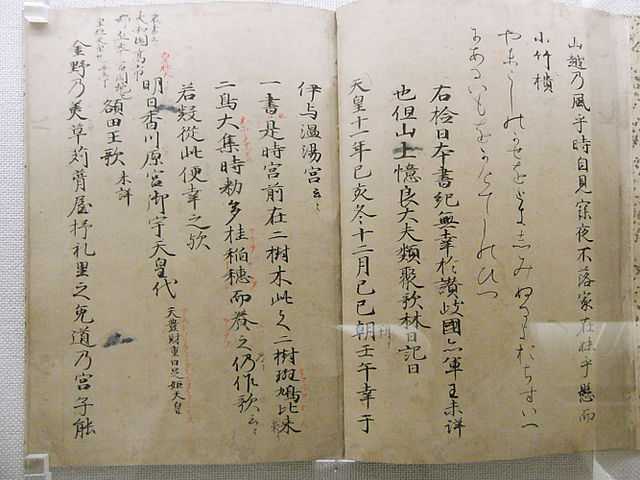 山越乃風乎時自見寐夜不落家在妹乎懸而
小竹櫃
やまこしのかせをときしみぬるよおちすいへ
にあるいもをかけてしのひつ
右撿日本書紀無幸於讃岐國亦軍王未詳
也但山上憶良大夫類聚歌林曰記曰
天皇十一年己亥冬十二月己巳朝壬午幸于
伊与温湯宮云〻
一書是時宮前在二樹木此之二樹斑鳩比米
二鳥大集時勅多挂稲穂而養之仍作歌云〻
若疑從此便幸之歟
明日香川原宮御宇天皇代 天豊財重日足姫天皇
額田王歌 未詳
金野乃美草苅葺屋杼礼里之兎道乃宮子能